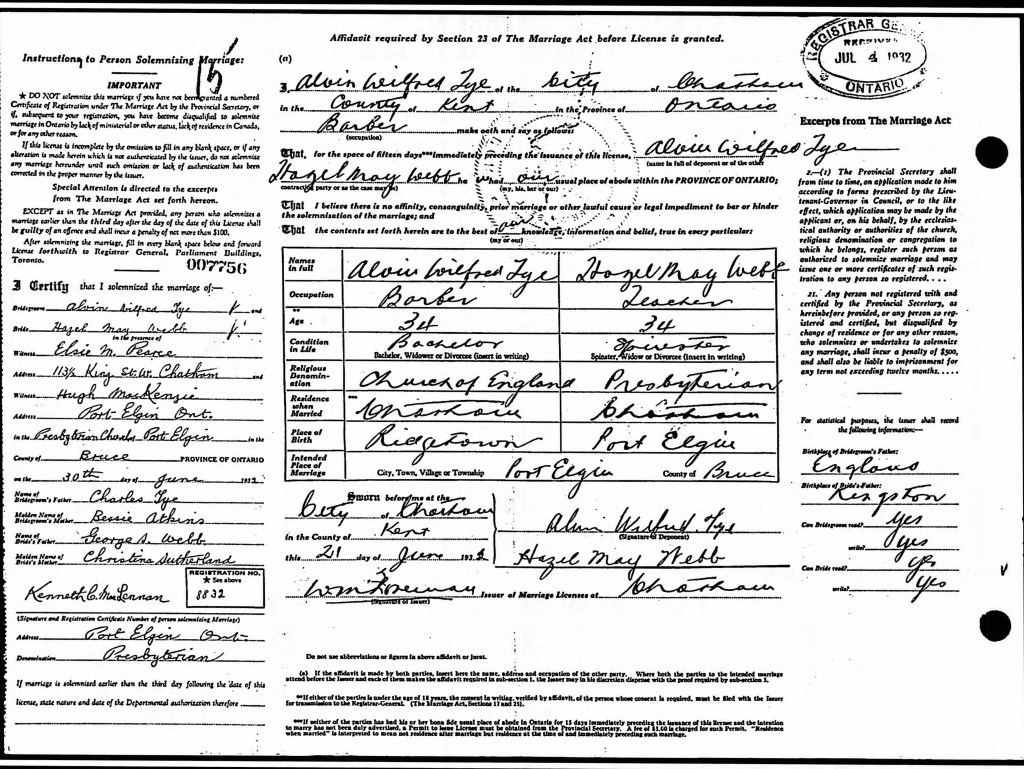 Affidavit required by Section 23 of The Marriage Act before License is granted.
REGISTRAR GENERAL
RECEIVED
JUL 4 1932
ONTARIO
15
Instructions to Person Solemnizing Marriage:
IMPORTANT
★ DO NOT solemnize this marriage if you have not been granted a numbered
Certificate of Registration under The Marriage Act by the Provincial Secretary, or
if, subsequent to your registration, you have become disqualified to solemnize
marriage in Ontario by lack of ministerial or other status, lack of residence in Canada,
or for any other reason.
If this license is incomplete by the omission to fill in any blank space, or if any
alteration is made herein which is not authenticated by the issuer, do not solemnize
any marriage hereunder until such omission or lack of authentication has been
corrected in the proper manner by the issuer.
Special Attention is directed to the excerpts
from The Marriage Act set forth hereon.
EXCEPT as in The Marriage Act provided, any person who solemnizes a
marriage earlier than the third day after the day of the date of this License shall
be guilty of an offence and shall incur a penalty of not more than $100.
After solemnizing the marriage, fill in every blank space below and forward
License forthwith to Registrar General, Parliament Buildings,
Toronto.
007756
I Certify that I solemnized the marriage of:—
Bridegroom Alvin Wilfred Tye and
Bride Hazel May Webb
in the presence of
Witness Elsie M. Pearce
Address 113½ King St. W. Chatham and
Witness Hugh MacKenzie
Address Port Elgin Ont.
in the Presbyterian Church, Port Elgin in the
County of Bruce PROVINCE OF ONTARIO
on the 30th day of June 1932
Name of Bridegroom's Father Charles Tye
Maiden Name of Bridegroom's Mother Bessie Atkins
Name of Bride's Father George S. Webb
Maiden Name of Bride's Mother Christina Sutherland
REGISTRATION NO.
★ See above
8832
Kenneth C. MacLennan
(Signature and Registration Certificate Number of person solemnizing Marriage)
Address Port Elgin Ont.
Denomination Presbyterian
If marriage is solemnized earlier than the third day following the date of this
license, state nature and date of the Departmental authorization therefore
(a)
I, Alvin Wilfred Tye of the City of Chatham
in the County of Kent in the Province of Ontario
Barber make oath and say as follows:
(occupation)
That, for the space of fifteen days***immediately preceding the issuance of this license, Alvin Wilfred Tye
(name in full of deponent or of the other
Hazel May Webb ha ve had our usual place of abode within the PROVINCE OF ONTARIO;
contracting party or as the case may be) (my, his, her or our)
That I believe there is no affinity, consanguinity, prior marriage or other lawful cause or legal impediment to bar or hinder
the solemnization of the marriage; and
That the contents set forth herein are to the best of our knowledge, information and belief, true in every particular:
(my or our)
Names in full Alvin Wilfred Tye Hazel May Webb
Occupation Barber Teacher
**
Age 34 34
Condition in Life Bachelor Spinster
Bachelor, Widower or Divorcee (insert in writing) Spinster, Widow or Divorcee (insert in writing)
Religious Denomination Church of England Presbyterian
Residence when Married *** Chatham Chatham
Place of Birth Ridgetown Port Elgin
Intended Place of Marriage City, Town, Village or Township Port Elgin County of Bruce
Sworn before me at the
City of Chatham
in the County of Kent
this 21 day of June 1932
Alvin Wilfred Tye
(Signature of Deponent)
Hazel May Webb
Wm Foreman Issuer of Marriage Licenses at Chatham
(Signature of Issuer)
Do not use abbreviations or figures in above affidavit or jurat.
(a) If the affidavit is made by both parties, insert here the name, address and occupation of the other party. Where both the parties to the intended marriage
attend before the Issuer and each of them makes the affidavit required in sub-section 1, the Issuer may in his discretion dispense with the proof required by sub-section 3.
**If either of the parties is under the age of 18 years, the consent in writing, verified by affidavit, of the person whose consent is required, must be filed with the Issuer
for transmission to the Registrar-General. (The Marriage Act, Sections 17 and 21).
***If neither of the parties has had his or her bona fide usual place of abode in Ontario for 15 days immediately preceding the issuance of this license and the intention
to marry has not been duly advertised, a Permit to issue License must be obtained from the Provincial Secretary. A fee of $1.00 is charged for such Permit. "Residence
when married" is interpreted to mean not residence after marriage but residence at the time of and immediately preceding such marriage.
Excerpts from The Marriage Act
2.—(1) The Provincial Secretary shall
from time to time, on application made to him
according to forms prescribed by the Lieu-
tenant-Governor in Council, or to the like
effect, which application may be made by the
applicant or, on his behalf, by the ecclesias-
tical authority or authorities of the church,
religious denomination or congregation to
which he belongs, register such person as
authorized to solemnize marriage and may
issue one or more certificates of such regis-
tration to any person so registered. . . .
21. Any person not registered with and
certified by the Provincial Secretary, as
hereinbefore provided, or any person so reg-
istered and certified, but disqualified by
change of residence or for any other reason,
who solemnizes or undertakes to solemnize
any marriage, shall incur a penalty of $500,
and shall also be liable to imprisonment for
any term not exceeding twelve months. . . . .
For statistical purposes, the issuer shall record
the following information:—
Birthplace of Bridegroom's Father:
England
Birthplace of Bride's Father:
Kingston
Can Bridegroom read? yes
write? yes
Can Bride read? yes
write? yes